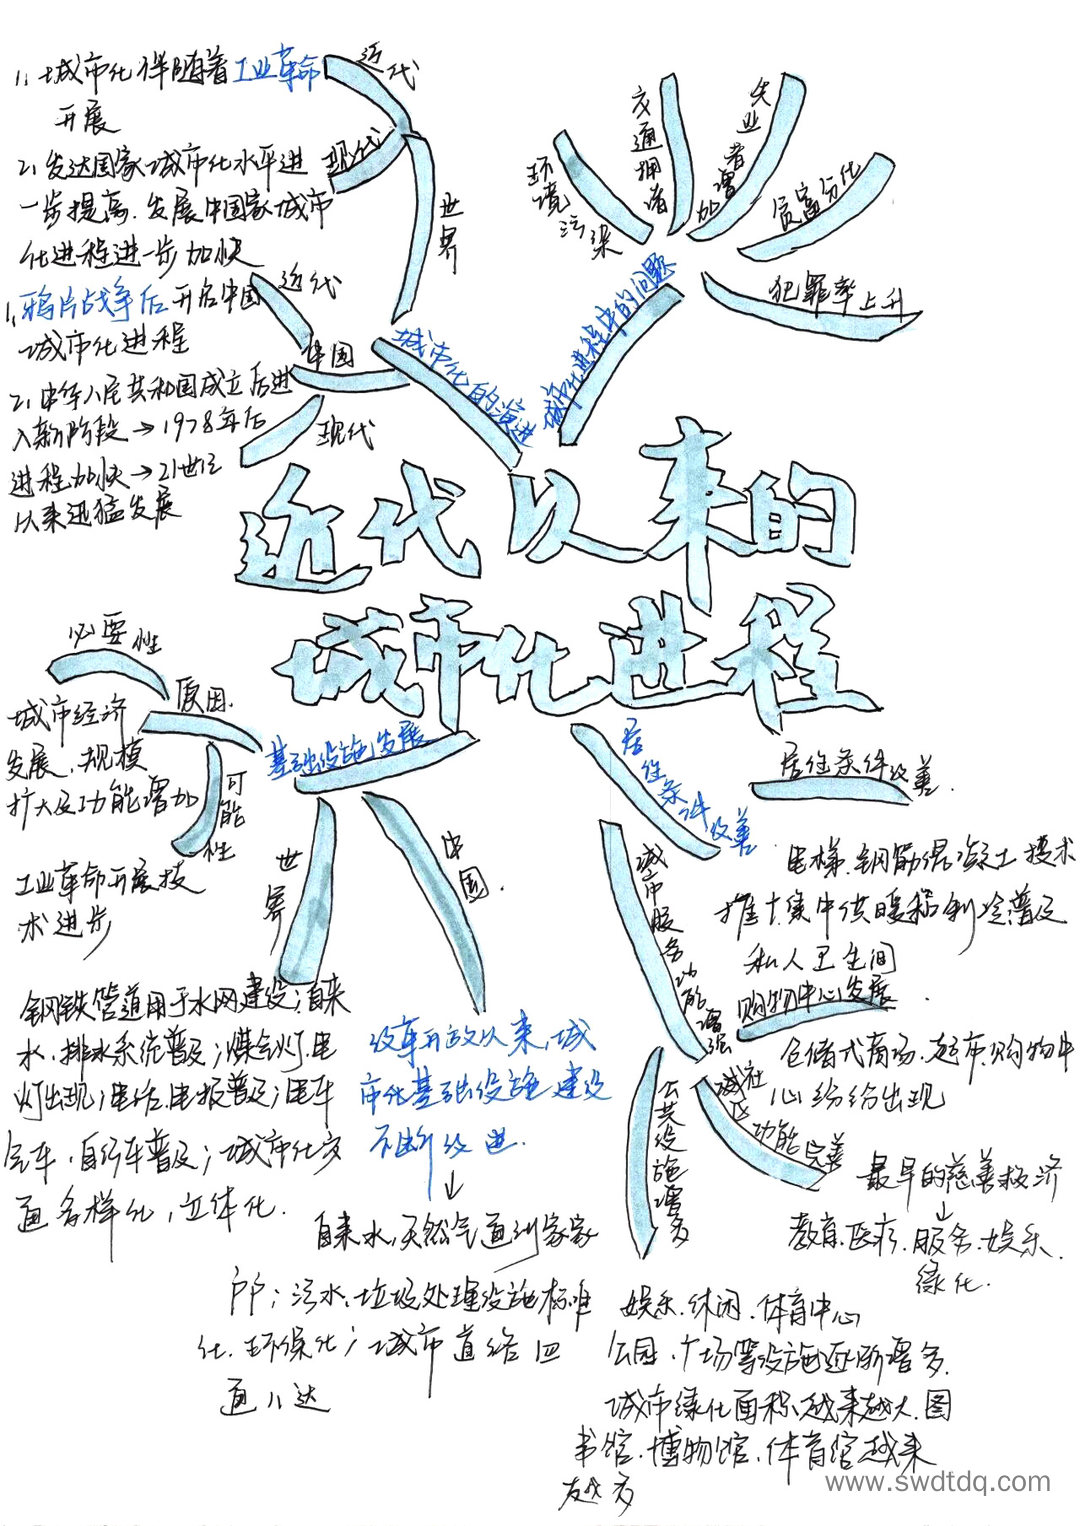 近代以来的
城市化进程
城市化的演进
世界
近代
1、城市化伴随着工业革命
开展
现代
2、发达国家城市化水平进
一步提高、发展中国家城市
化进程进一步加快
中国
近代
1、鸦片战争后开启中国
城市化进程
现代
2、中华人民共和国成立后进
入新阶段→1978年后
进程加快→21世纪
以来迅猛发展
城市化进程中的问题
环境污染
交通拥堵
失业者增加
贫富分化
犯罪率上升
基础设施发展
原因
必要性
城市经济
发展、规模
扩大及功能增加
可能性
工业革命开展技
术进步
世界
钢铁管道用于水网建设；自来
水、排水系统普及；煤气灯、电
灯出现；电话、电报普及；电车
汽车、自行车普及；城市化交
通多样化，立体化.
中国.
改革开放以来，城
市化基础设施建设
不断改进.
↓
自来水、天然气通到家家
户户；污水、垃圾处理设施标准
化、环保化；城市道路四
通八达
居住条件改善
居住条件改善.
电梯、钢筋混凝土技术
推广集中供暖和制冷普及
私人卫生间
城市服务功能增强
购物中心发展.
仓储式商场、超市、购物中
心纷纷出现
城社区功能完善
最早的慈善救济
↓
教育、医疗、服务、娱乐.
绿化.
公共设施增多
娱乐、休闲、体育中心
公园、广场等设施逐渐增多.
城市绿化面积越来越大、图
书馆、博物馆、体育馆越来
越多
www.swdtdq.com